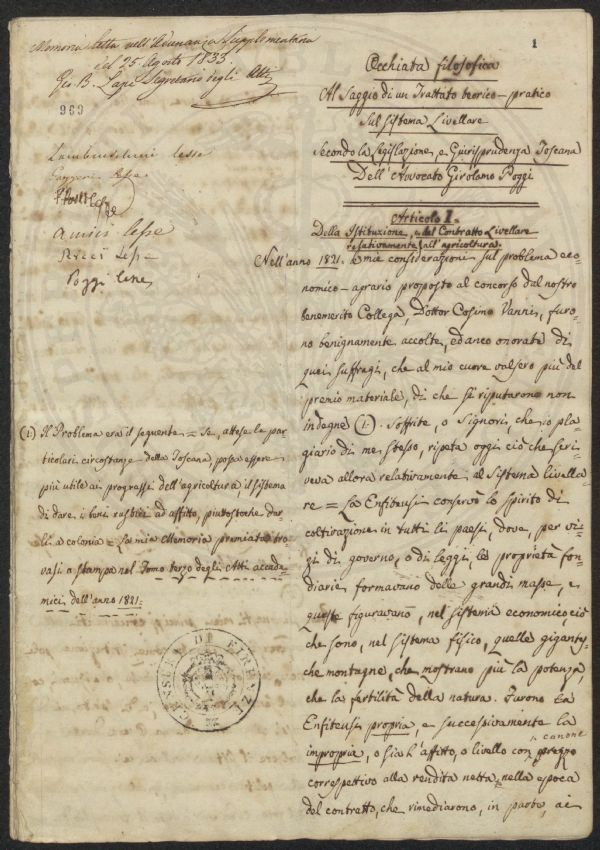 Memoria letta nell'Adunanza Supplementaria
del 25. Agosto 1833.
Gio. B. Lapi Segretario degli Atti
969
Lambruschini lesse
lesse
lesse
amici lesse
Ricci lesse
Poggi lesse
1
Occhiata filosofica
Al Saggio di un Trattato teorico-pratico
Sul Sistema Livellare
Secondo la Legislazione, e Giurisprudenza Toscana
Dell'Avvocato Girolamo Poggi
Articolo I.
Della Istituzione, e del Contratto Livellare
relativamente all'agricoltura.
Nell'anno 1821. le mie considerazioni sul problema eco-
nomico-agrario proposto al concorso dal nostro
benemerito Collega, Dottor Cosimo Vanni, furo-
no benignamente accolte, ed anco onorate di
quei suffragj, che al mio cuore valsero più del
premio materiale, di che si riputarono non
indegne (1). Soffrite, o Signori, che io pla-
giario di me stesso, ripeta oggi ciò che scri-
veva allora relativamente al Sistema livella-
re = La Enfiteusi conservò lo spirito di
coltivazione in tutti li paesi, dove, per vi-
zj di governo, o di leggi, le proprietà fon-
diarie formavano delle grandi masse, e
queste figuravano, nel sistema economico, ciò
che sono, nel sistema fisico, quelle gigante-
che montagne, che mostrano più la potenza,
che la fertilità della natura. Furono la
Enfiteusi propria, e successivamente la
impropria, o sia l'affitto, o livello con prezzo
canone
correspettivo alla rendita netta, nella epoca
del contratto, che rimediarono, in parte, ai
(1) Il Problema era il seguente = Se, attese le par-
ticolari circostanze della Toscana, possa essere
più utile ai progressi dell'agricoltura, il sistema
di dare i beni rustici ad affitto, piuttostoche dar-
li a colonia = La mia Memoria premiata tro-
vasi a stampa nel Tomo terzo degli Atti accade-
mici dell'anno 1821.
DI FIRENZE